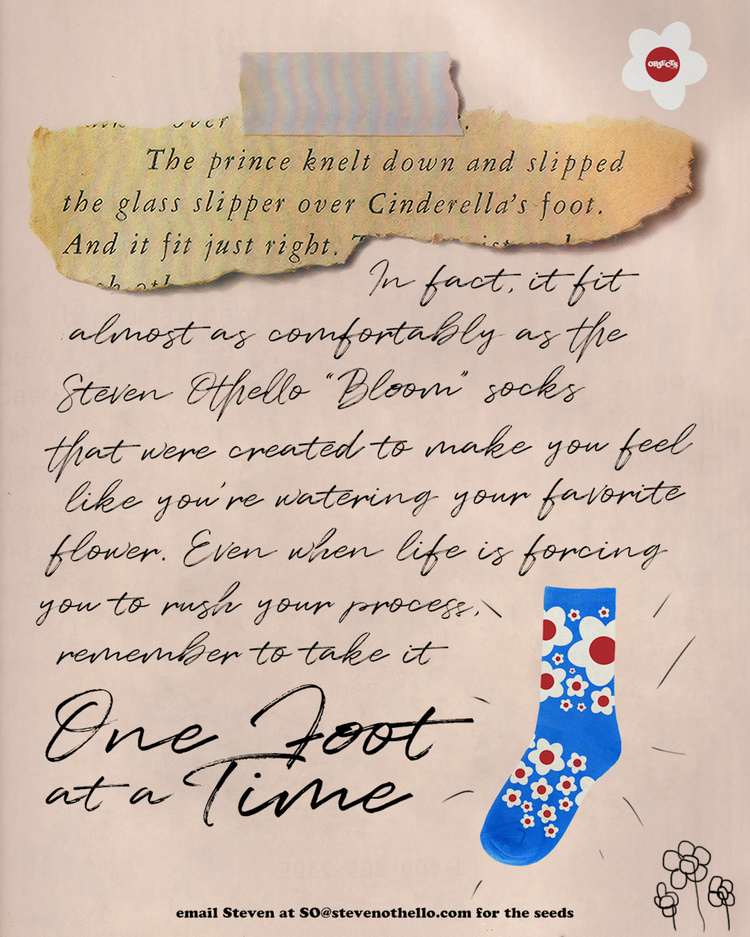 OBJECTS
over
The prince knelt down and slipped
the glass slipper over Cinderella's foot.
And it fit just right.
In fact, it fit
almost as comfortably as the
Steven Othello "Bloom" socks
that were created to make you feel
like you're watering your favorite
flower. Even when life is forcing
you to rush your process,
remember to take it
One Foot
at a Time
email Steven at SO@stevenothello.com for the seeds